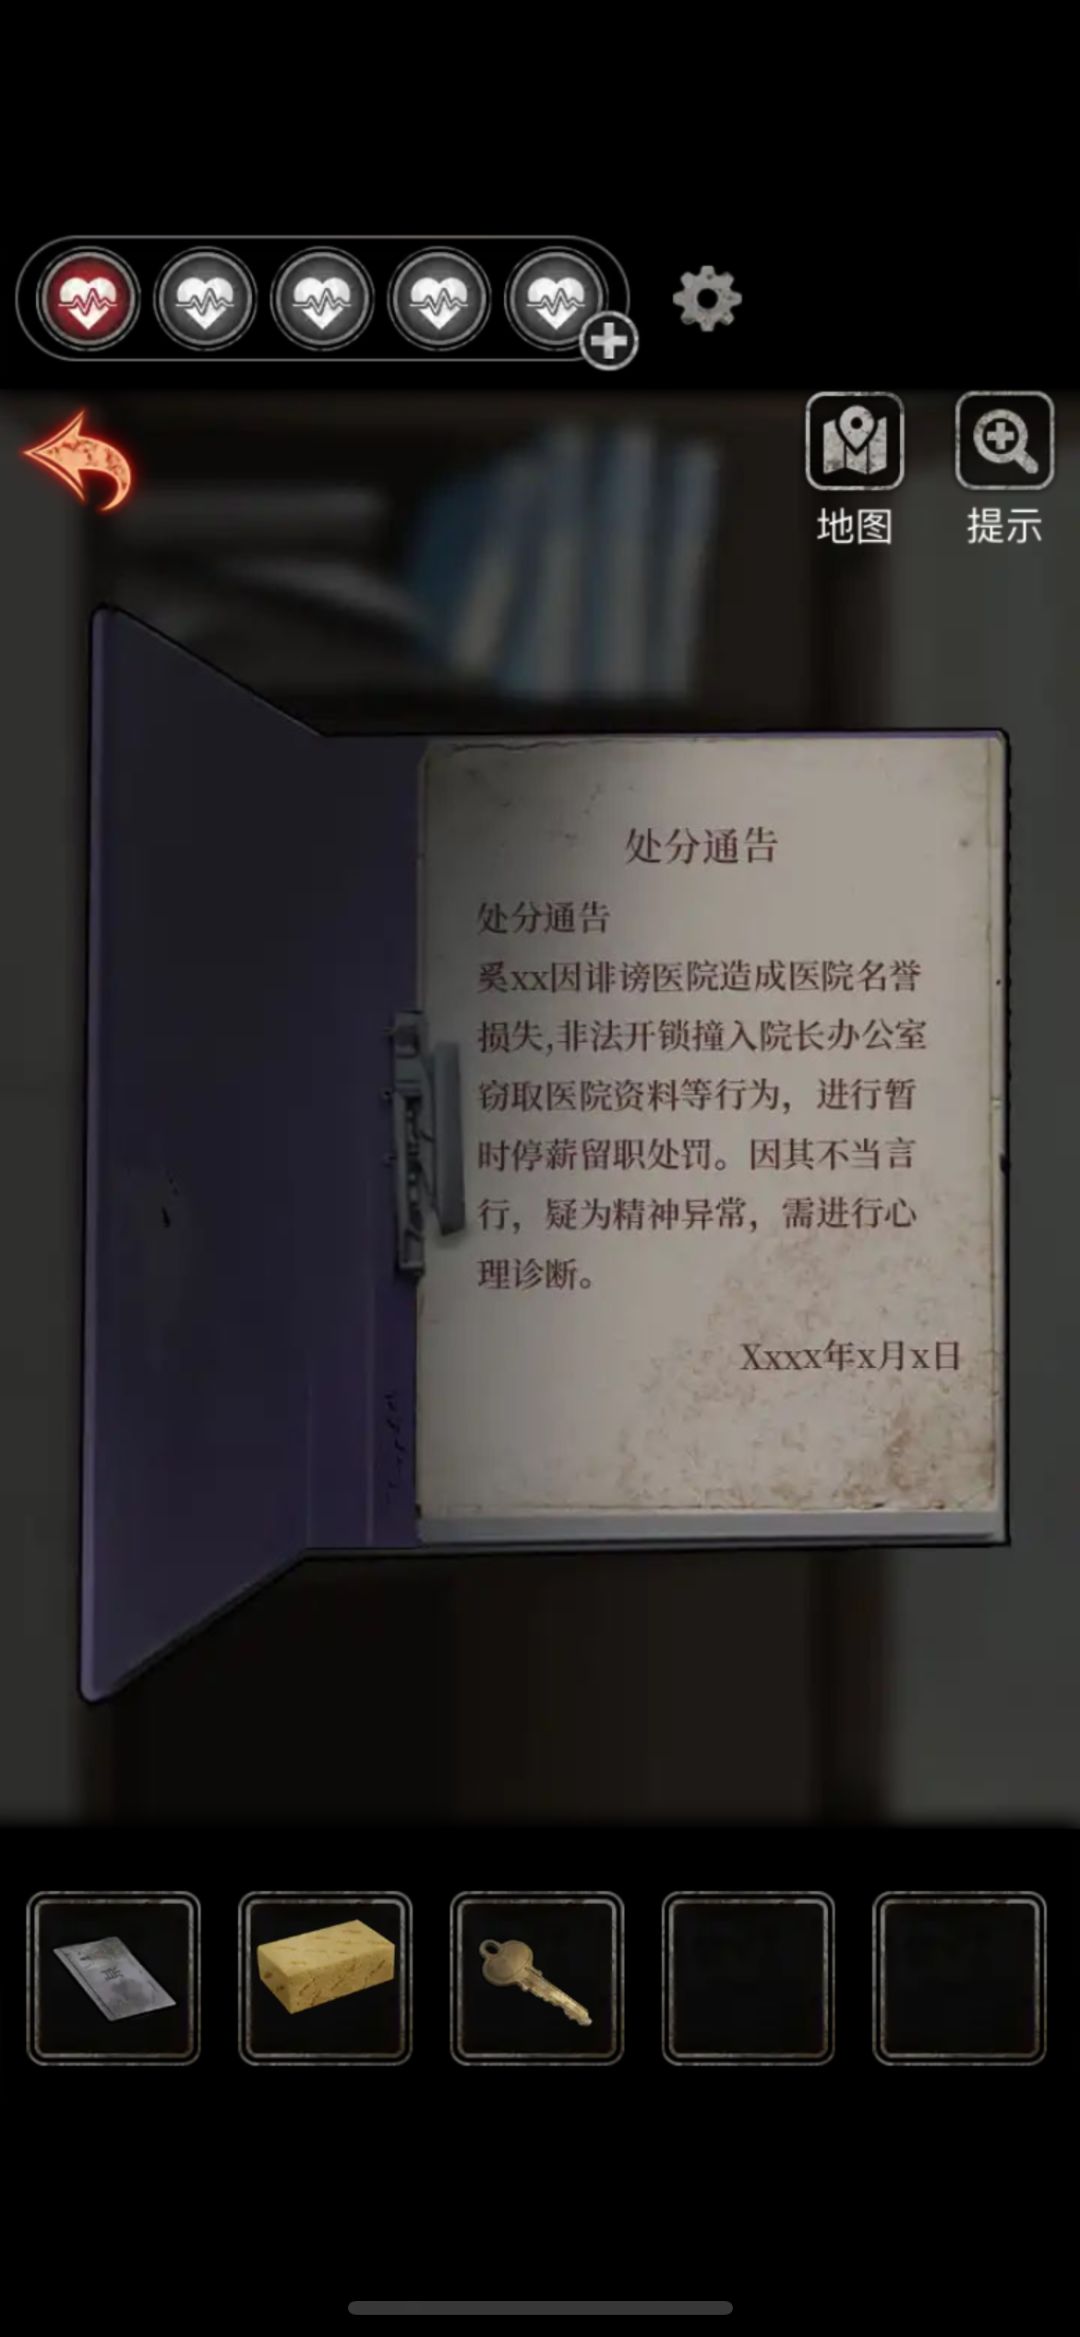 地图
提示
处分通告
处分通告
奚xx因诽谤医院造成医院名誉
损失,非法开锁撞入院长办公室
窃取医院资料等行为，进行暂
时停薪留职处罚。因其不当言
行，疑为精神异常，需进行心
理诊断。
Xxxx年x月x日